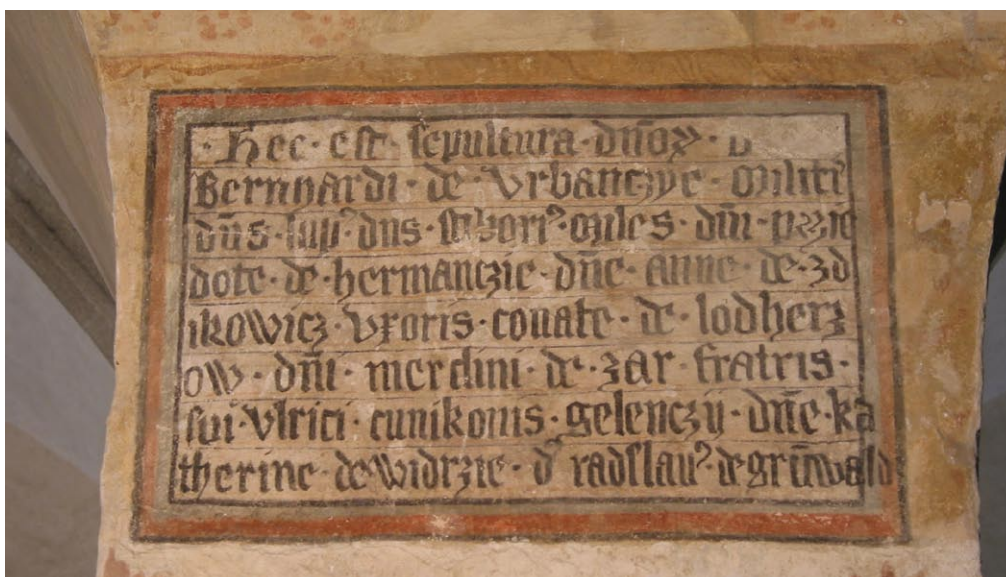 · Hec · est · sepultura · dn̄oꝝ · D
Bernhardi · de · Vrbanczye · militꝭ
dn̄s · lupꝰ dns · miles · dn̄i · przie
dote · de · hermanczie · dn̄e · anne · de · zd
ikowicz · vxoris · conate · de · lodherz
ow · dn̄i · merclini · de · zar · fratris ·
sui · Vlrici · cunikonis · gelenczij · dn̄e · ka
therine · de widrzie · dꝰ radslauꝰ · de grūwald